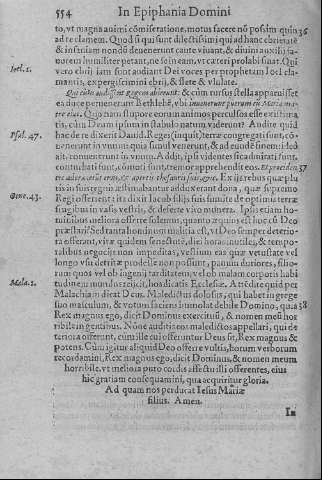 554 In Epiphania Domini
to, vt magna animi cõmiseratione, motus facere nõ possim quin 36
ad te clamem. Quod si qui sunt dilectissimi qui ad hanc ebrietatē
& in saniam nondũ deuenerunt caute viuant, & diuini auxilij fa-
uorem humiliter petant, ne so in eam, vt cæteri prolabi sinat. Qui
Ioel. 1. vero ebrij iam sunt audiant Dei voces per prophetam Ioel cla-
mantis, expergiscimini ebrij, & flete & vlulate.
Qui cũ audissent regem abierunt: & cùm rursus stella apparuisset
ea duce peruenerunt Bethlehē, vbi inuenerunt puerum cũ Maria ma-
tre eius. Quo nam stupore eorum animos perculsos esse existima
tis, cùm Deum ipsum in stabulo natum viderunt? Audite quid
Psal. 47. hac de re dixerit Dauid. Reges (inquit) terræ congregati sunt, cõ-
uenerunt in vnum: quia simul venerunt, & ad eundē finem ideo
ait, conuenerunt in vnum. Addit, ipsi videntes sic admirati sunt,
conturbati sunt, cõmoti sunt, tremor apprehendit eos. Et procidentes 37
te adorauerunt eum, & apertis thesauris suis, &c. Ex ijs rebus quæ plu
ris in suis regnis æstimabantur adduxerant dona, quæ supremo
Gene. 43. Regi offerrent: ita dixit Iacob filijs suis sumite de optimis terræ
frugibus in vasis vestris, & deferte viro munera. Ipsi etiam ho-
minibus meliora offerre solemus, quanto æquius est hoc sũ Deo
præstari? Sed tanta hominum malitia est, vt Deo semper deterio-
ra offerant, vitæ quidem senectutē, diei horas inutiles, & tempo-
ralibus negocijs non impeditas, vestium eas quæ vetustate vel
longo vsu detritæ prodesse non possunt, panum duriores, filio-
rum quos vel ob ingenij tarditatem, vel ob malam corporis habi
Mala. 1. tudinem mundus rejicit, hos dicatis Ecclesiæ. Attēdite quid per
Malachiam dicat Deus. Maledictus dolosus, qui habet in grege
suo masculum, & votum faciens immolat debile Domino, quia 38
Rex magnus ego, dicit Dominus exercituũ, & nomen meũ hor
ribile in gentibus. Nõne auditis eos maledictos appellari, qui de
teriora offerunt, cum ille cui offeruntur Deus sit, Rex magnus &
potens. Cùm igitur aliquid Deo offerre vultis, horum verborum
recordamini, Rex magnus ego, dicit Dominus, & nomen meum
horribile, vt meliora puro cordis affectu illi offerentes, eius
hîc gratiam consequamini, qua acquiritur gloria.
Ad quam nos perducat Iesus Mariæ
filius. Amen.
In